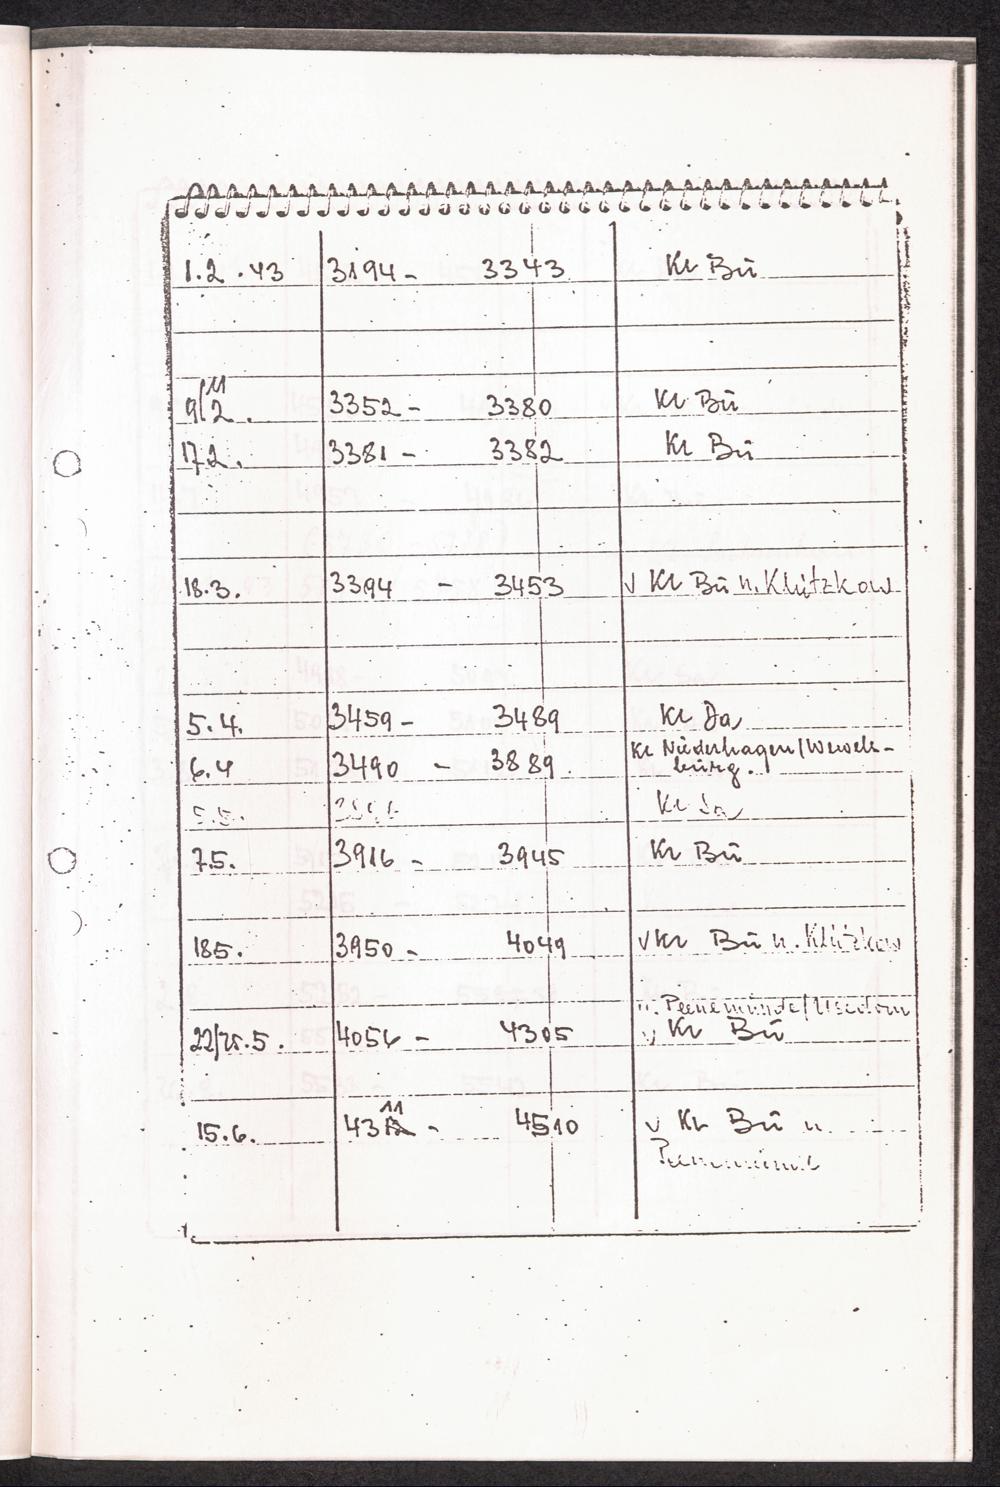 1.2.43 3194 - 3343 Kl Bu
11
9/2. 3352 - 3380 Kl Bu
17.2. 3381 - 3382 Kl Bu
18.3. 3394 - 3453 v Kl Bu n. Klützkow
5.4. 3459 - 3489 Kl Da
6.4 3490 - 3889. Kl Niederhagen/Wewels-
burg.
5.5. Kl Da
7.5. 3916 - 3945 Kl Bu
18.5. 3950 - 4049 v Kl Bu n. Klützkow
n. Peenemünde/Usedom
22/25.5. 4056 - 4305 v Kl Bu
11
15.6. 43 - 4510 v Kl Bu n.
Peenemünde